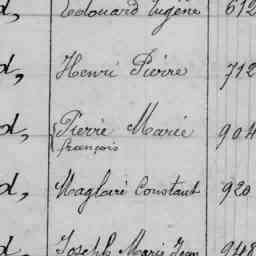 d, Edouard Eugène 612
d, Henri Pierre 712
d, Pierre Marie 904
françois
d, Magloire Constant 920
d, Joseph Marie Jean 948